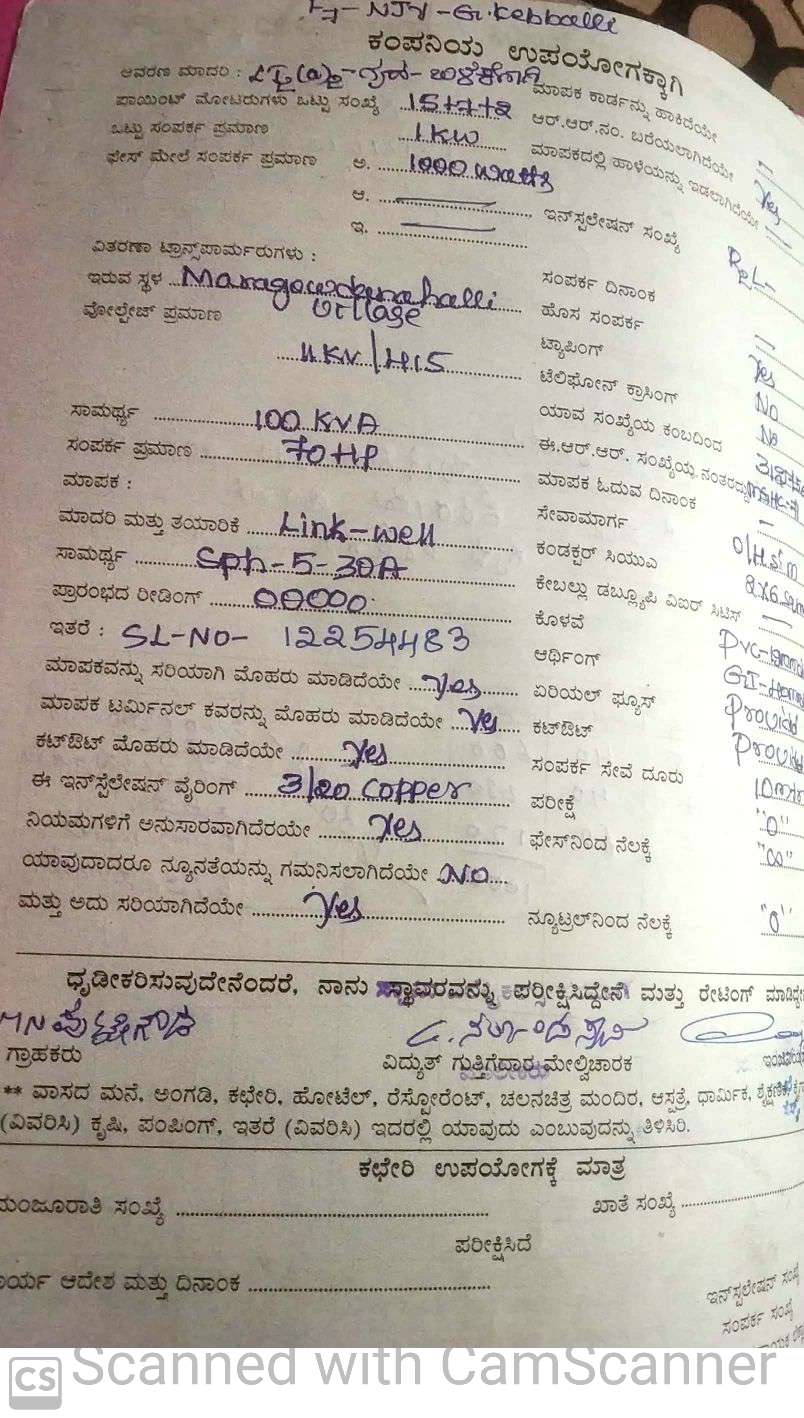 F7-NJY-G.Kebballi
ಕಂಪನಿಯ ಉಪಯೋಗಕ್ಕಾಗಿ
ಆವರಣ ಮಾದರಿ :
ಮಾಪಕ ಕಾರ್ಡನ್ನು ಹಾಕಿದೆಯೇ
ಪಾಯಿಂಟ್ ಮೋಟರುಗಳು ಒಟ್ಟು ಸಂಖ್ಯೆ 15+7+2
ಆರ್.ಆರ್.ನಂ. ಬರೆಯಲಾಗಿದೆಯೇ Yes
ಒಟ್ಟು ಸಂಪರ್ಕ ಪ್ರಮಾಣ 1KW
ಮಾಪಕದಲ್ಲಿ ಹಾಳೆಯನ್ನು ಇಡಲಾಗಿದೆಯೇ
ಫೇಸ್ ಮೇಲೆ ಸಂಪರ್ಕ ಪ್ರಮಾಣ ಅ. 1000 watts
ಆ.
ಇನ್‌ಸ್ಪಲೇಷನ್ ಸಂಖ್ಯೆ
ಇ.
ವಿತರಣಾ ಟ್ರಾನ್ಸ್‌ಪಾರ್ಮರುಗಳು :
ಸಂಪರ್ಕ ದಿನಾಂಕ
ಇರುವ ಸ್ಥಳ Village
ಹೊಸ ಸಂಪರ್ಕ Yes
ವೋಲ್ಟೇಜ್ ಪ್ರಮಾಣ 11KV/415
ಟ್ಯಾಪಿಂಗ್ NO
ಟೆಲಿಫೋನ್ ಕ್ರಾಸಿಂಗ್ No
ಸಾಮರ್ಥ್ಯ 100 KVA
ಯಾವ ಸಂಖ್ಯೆಯ ಕಂಬದಿಂದ
ಸಂಪರ್ಕ ಪ್ರಮಾಣ 70 HP
ಈ.ಆರ್.ಆರ್. ಸಂಖ್ಯೆಯ ನಂತರದ್ದು
ಮಾಪಕ :
ಮಾಪಕ ಓದುವ ದಿನಾಂಕ
ಮಾದರಿ ಮತ್ತು ತಯಾರಿಕೆ Link-well
ಸೇವಾಮಾರ್ಗ
ಸಾಮರ್ಥ್ಯ Sph-5-30A
ಕಂಡಕ್ಟರ್ ಸಿಯುವಿ
ಪ್ರಾರಂಭದ ರೀಡಿಂಗ್ 00000
ಕೇಬಲ್ಲು ಡಬ್ಲ್ಯೂಪಿ ವಿಐರ್ ಸಿಟಿಸ್
ಕೊಳವೆ
ಇತರೆ : SL-NO- 12254483
ಆರ್ಥಿಂಗ್
ಮಾಪಕವನ್ನು ಸರಿಯಾಗಿ ಮೊಹರು ಮಾಡಿದೆಯೇ Yes
ಏರಿಯಲ್ ಫ್ಯೂಸ್ Provid
ಮಾಪಕ ಟರ್ಮಿನಲ್ ಕವರನ್ನು ಮೊಹರು ಮಾಡಿದೆಯೇ Yes
ಕಟ್‌ಔಟ್ Provid
ಕಟ್‌ಔಟ್ ಮೊಹರು ಮಾಡಿದೆಯೇ Yes
ಸಂಪರ್ಕ ಸೇವೆ ದೂರು
ಈ ಇನ್‌ಸ್ಟೆಲೇಷನ್ ವೈರಿಂಗ್ 3/20 Copper
ಪರೀಕ್ಷೆ "0"
ನಿಯಮಗಳಿಗೆ ಅನುಸಾರವಾಗಿದೆರಯೇ Yes
ಫೇಸ್‌ನಿಂದ ನೆಲಕ್ಕೆ "∞"
ಯಾವುದಾದರೂ ನ್ಯೂನತೆಯನ್ನು ಗಮನಿಸಲಾಗಿದೆಯೇ NO
ಮತ್ತು ಅದು ಸರಿಯಾಗಿದೆಯೇ Yes
ನ್ಯೂಟ್ರಲ್‌ನಿಂದ ನೆಲಕ್ಕೆ "0"
ಧೃಡೀಕರಿಸುವುದೇನೆಂದರೆ, ನಾನು ಸ್ಥಾವರವನ್ನು ಪರೀಕ್ಷಿಸಿದ್ದೇನೆ ಮತ್ತು ರೇಟಿಂಗ್
ಗ್ರಾಹಕರು
ವಿದ್ಯುತ್ ಗುತ್ತಿಗೆದಾರ ಮೇಲ್ವಿಚಾರಕ
** ವಾಸದ ಮನೆ, ಅಂಗಡಿ, ಕಛೇರಿ, ಹೋಟೆಲ್, ರೆಸ್ಟೋರೆಂಟ್, ಚಲನಚಿತ್ರ ಮಂದಿರ, ಆಸ್ಪತ್ರೆ, ಧಾರ್ಮಿಕ,
(ವಿವರಿಸಿ) ಕೃಷಿ, ಪಂಪಿಂಗ್, ಇತರೆ (ವಿವರಿಸಿ) ಇದರಲ್ಲಿ ಯಾವುದು ಎಂಬುವುದನ್ನು ತಿಳಿಸಿರಿ.
ಕಛೇರಿ ಉಪಯೋಗಕ್ಕೆ ಮಾತ್ರ
ಮಂಜೂರಾತಿ ಸಂಖ್ಯೆ
ಖಾತೆ ಸಂಖ್ಯೆ
ಪರೀಕ್ಷಿಸಿದೆ
ಆದೇಶ ಮತ್ತು ದಿನಾಂಕ
ಇನ್‌ಸ್ಪಲೇಷನ್ ಸಂಖ್ಯೆ
ಸಂಪರ್ಕ ಸಂಖ್ಯೆ
CS Scanned with CamScanner